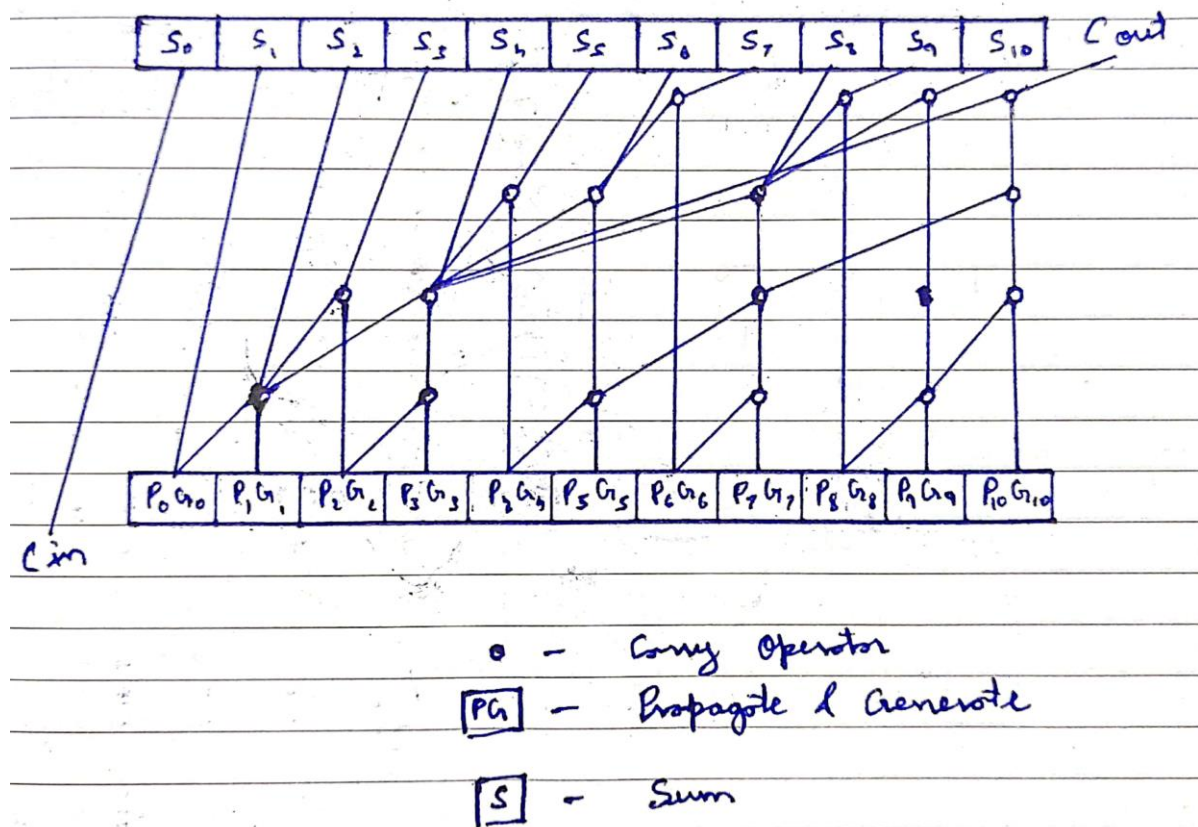 S₀ S₁ S₂ S₃ S₄ S₅ S₆ S₇ S₈ S₉ S₁₀ Cout
P₀G₀ P₁G₁ P₂G₂ P₃G₃ P₄G₄ P₅G₅ P₆G₆ P₇G₇ P₈G₈ P₉G₉ P₁₀G₁₀
Cin
- Carry Operator
PG - Propagate & Generate
S - Sum